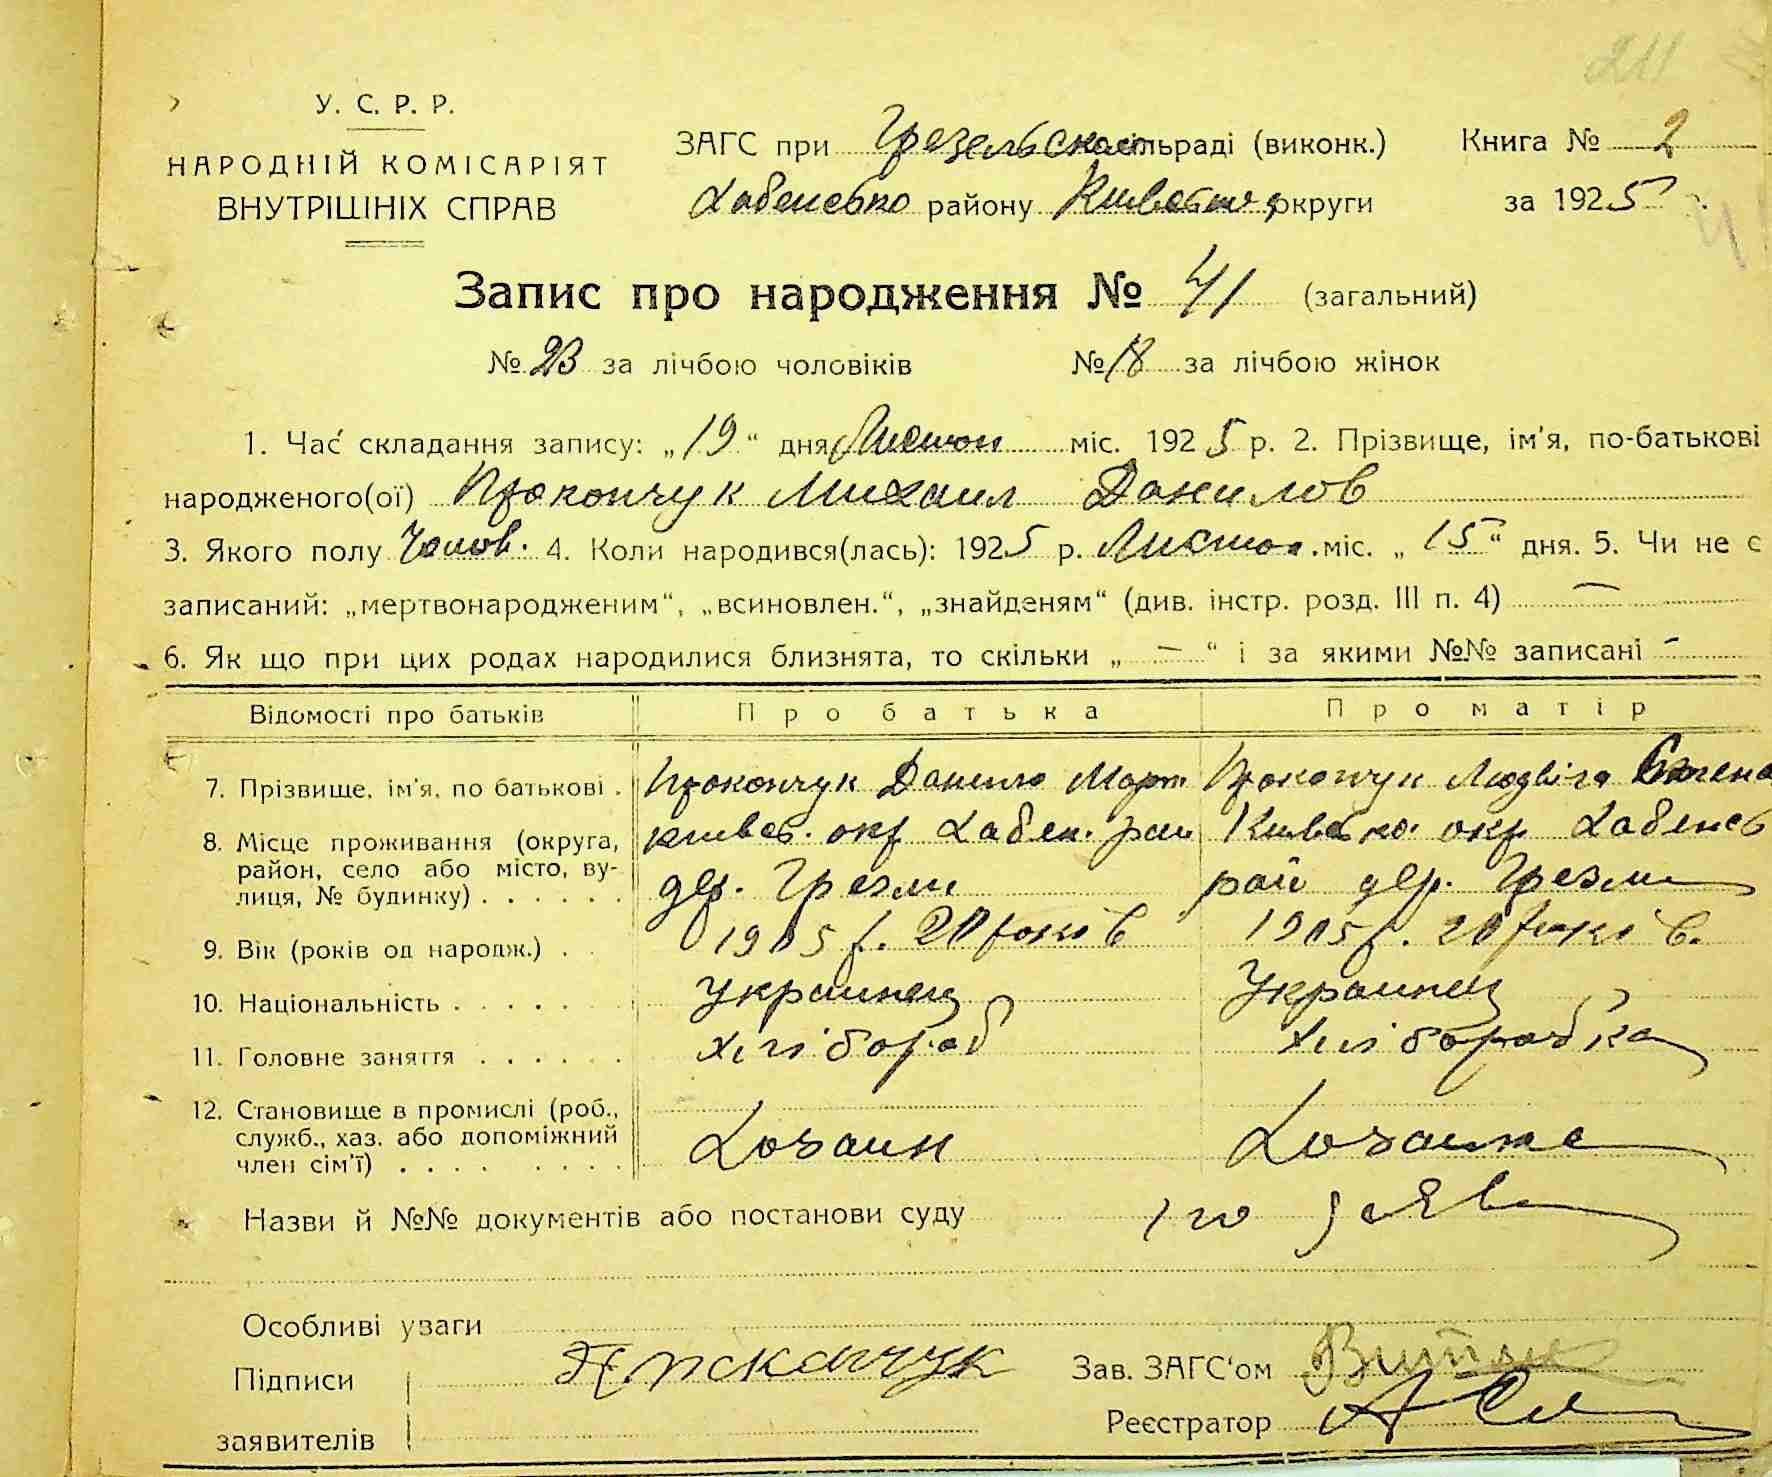 211
У. С. Р. Р.
НАРОДНІЙ КОМІСАРІЯТ
ВНУТРІШНІХ СПРАВ
ЗАГС при Грезельской сільраді (виконк.) Книга № 2
Хабенсько району Київської округи за 1925 р.
Запис про народження № 41 (загальний)
№ 23 за лічбою чоловіків № 18 за лічбою жінок
1. Час складання запису: „19“ дня Листоп міс. 1925 р. 2. Прізвище, ім'я, по-батькові
народженого(ої) Прокопчук Михаил Данилов
3. Якого полу Чолов. 4. Коли народився(лась): 1925 р. Листоп. міс. „15“ дня. 5. Чи не є
записаний: „мертвонародженим“, „всиновлен.“, „знайденям“ (див. інстр. розд. III п. 4) —
6. Як що при цих родах народилися близнята, то скільки „—“ і за якими №№ записані —
Відомості про батьків Про батька Про матір
7. Прізвище, ім'я, по батькові . Прокопчук Данило Март Прокопчук Людвіга
8. Місце проживання (округа, киевс. окр Хабен. рай Киевско. окр Хабенсь
район, село або місто, ву-
лиця, № будинку) . . . . . . дер. Грезли рай дер. Грезли
9. Вік (років од народж.) . . 1905 р. 20 років 1905 р. 20 років.
10. Національність . . . . . Украинец Украинец
11. Головне заняття . . . . . . хлібороб хліборобка
12. Становище в промислі (роб.,
служб., хаз. або допоміжний Хозаин Хозаика
член сім'ї) . . . . . . . .
Назви й №№ документів або постанови суду
Особливі уваги
Підписи Прокопчук Зав. ЗАГС'ом
заявителів Реєстратор